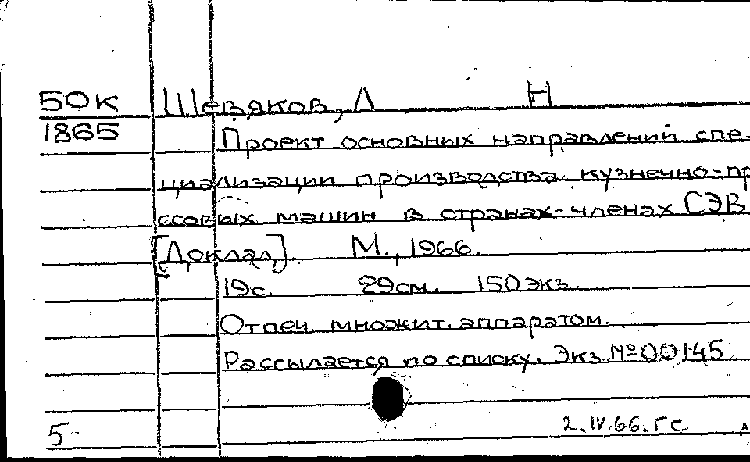 50К Шевяков, Л Н
1865 Проект основных направлений спе-
циализации производства кузнечно-пр
ссовых машин в странах-членах СЭВ
[Доклад]. М., 1966.
19с. 29см. 150 экз.
Отпеч. множит. аппаратом.
Рассылается по списку. Экз. №00145
5 2.IV.66. Гс